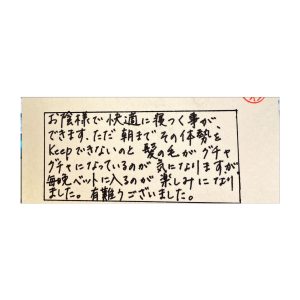 お陰様で快適に寝つく事が、
できます。ただ朝までその体勢を
Keepできないのと髪の毛がグチャ
グチャになっているのが気になりますが、
毎晩ベットに入るのが楽しみになり
ました。有難うございました。